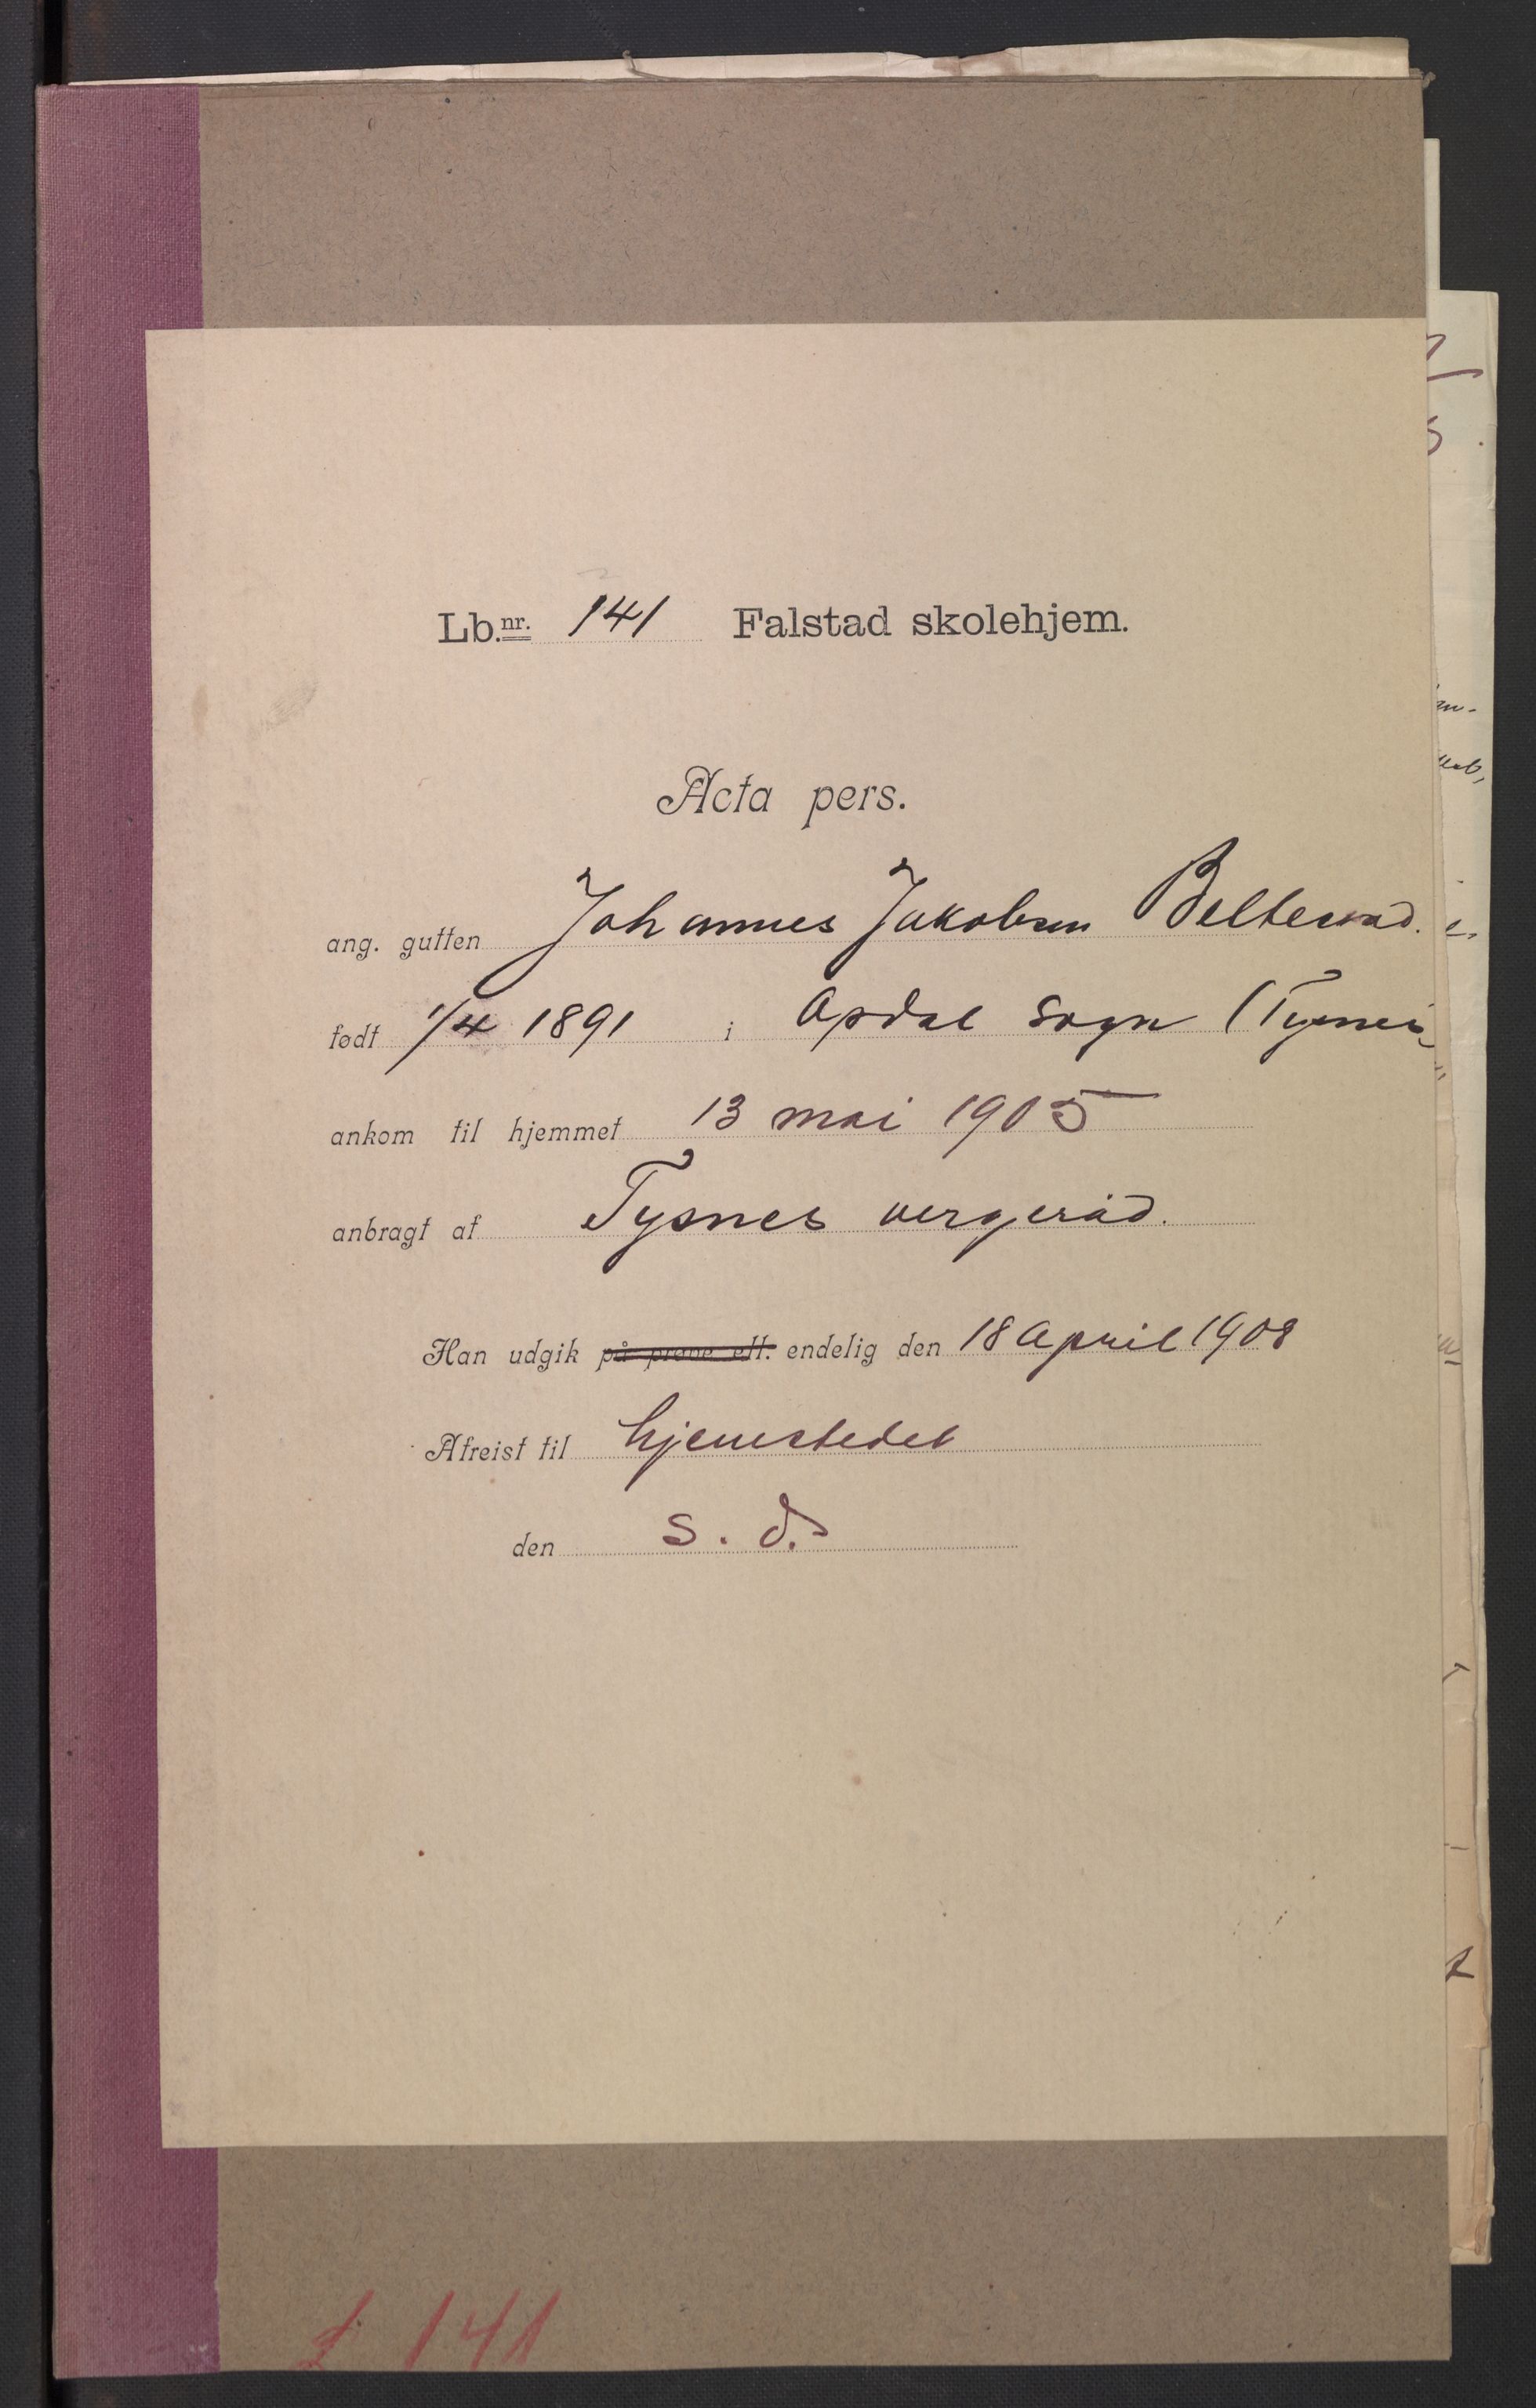 Lb.nr. 141 Falstad skolehjem.
Acta pers.
ang. gutten Johannes Jakobsen
født 1/4 1891 i Opdal Sogn (Tysnes
ankom til hjemmet 13 mai 1905
anbragt af Tysnes vergeråd.
Han udgik på prøve ell. endelig den 18 April 1908
Afreist til hjemstedet
den s. d.
141